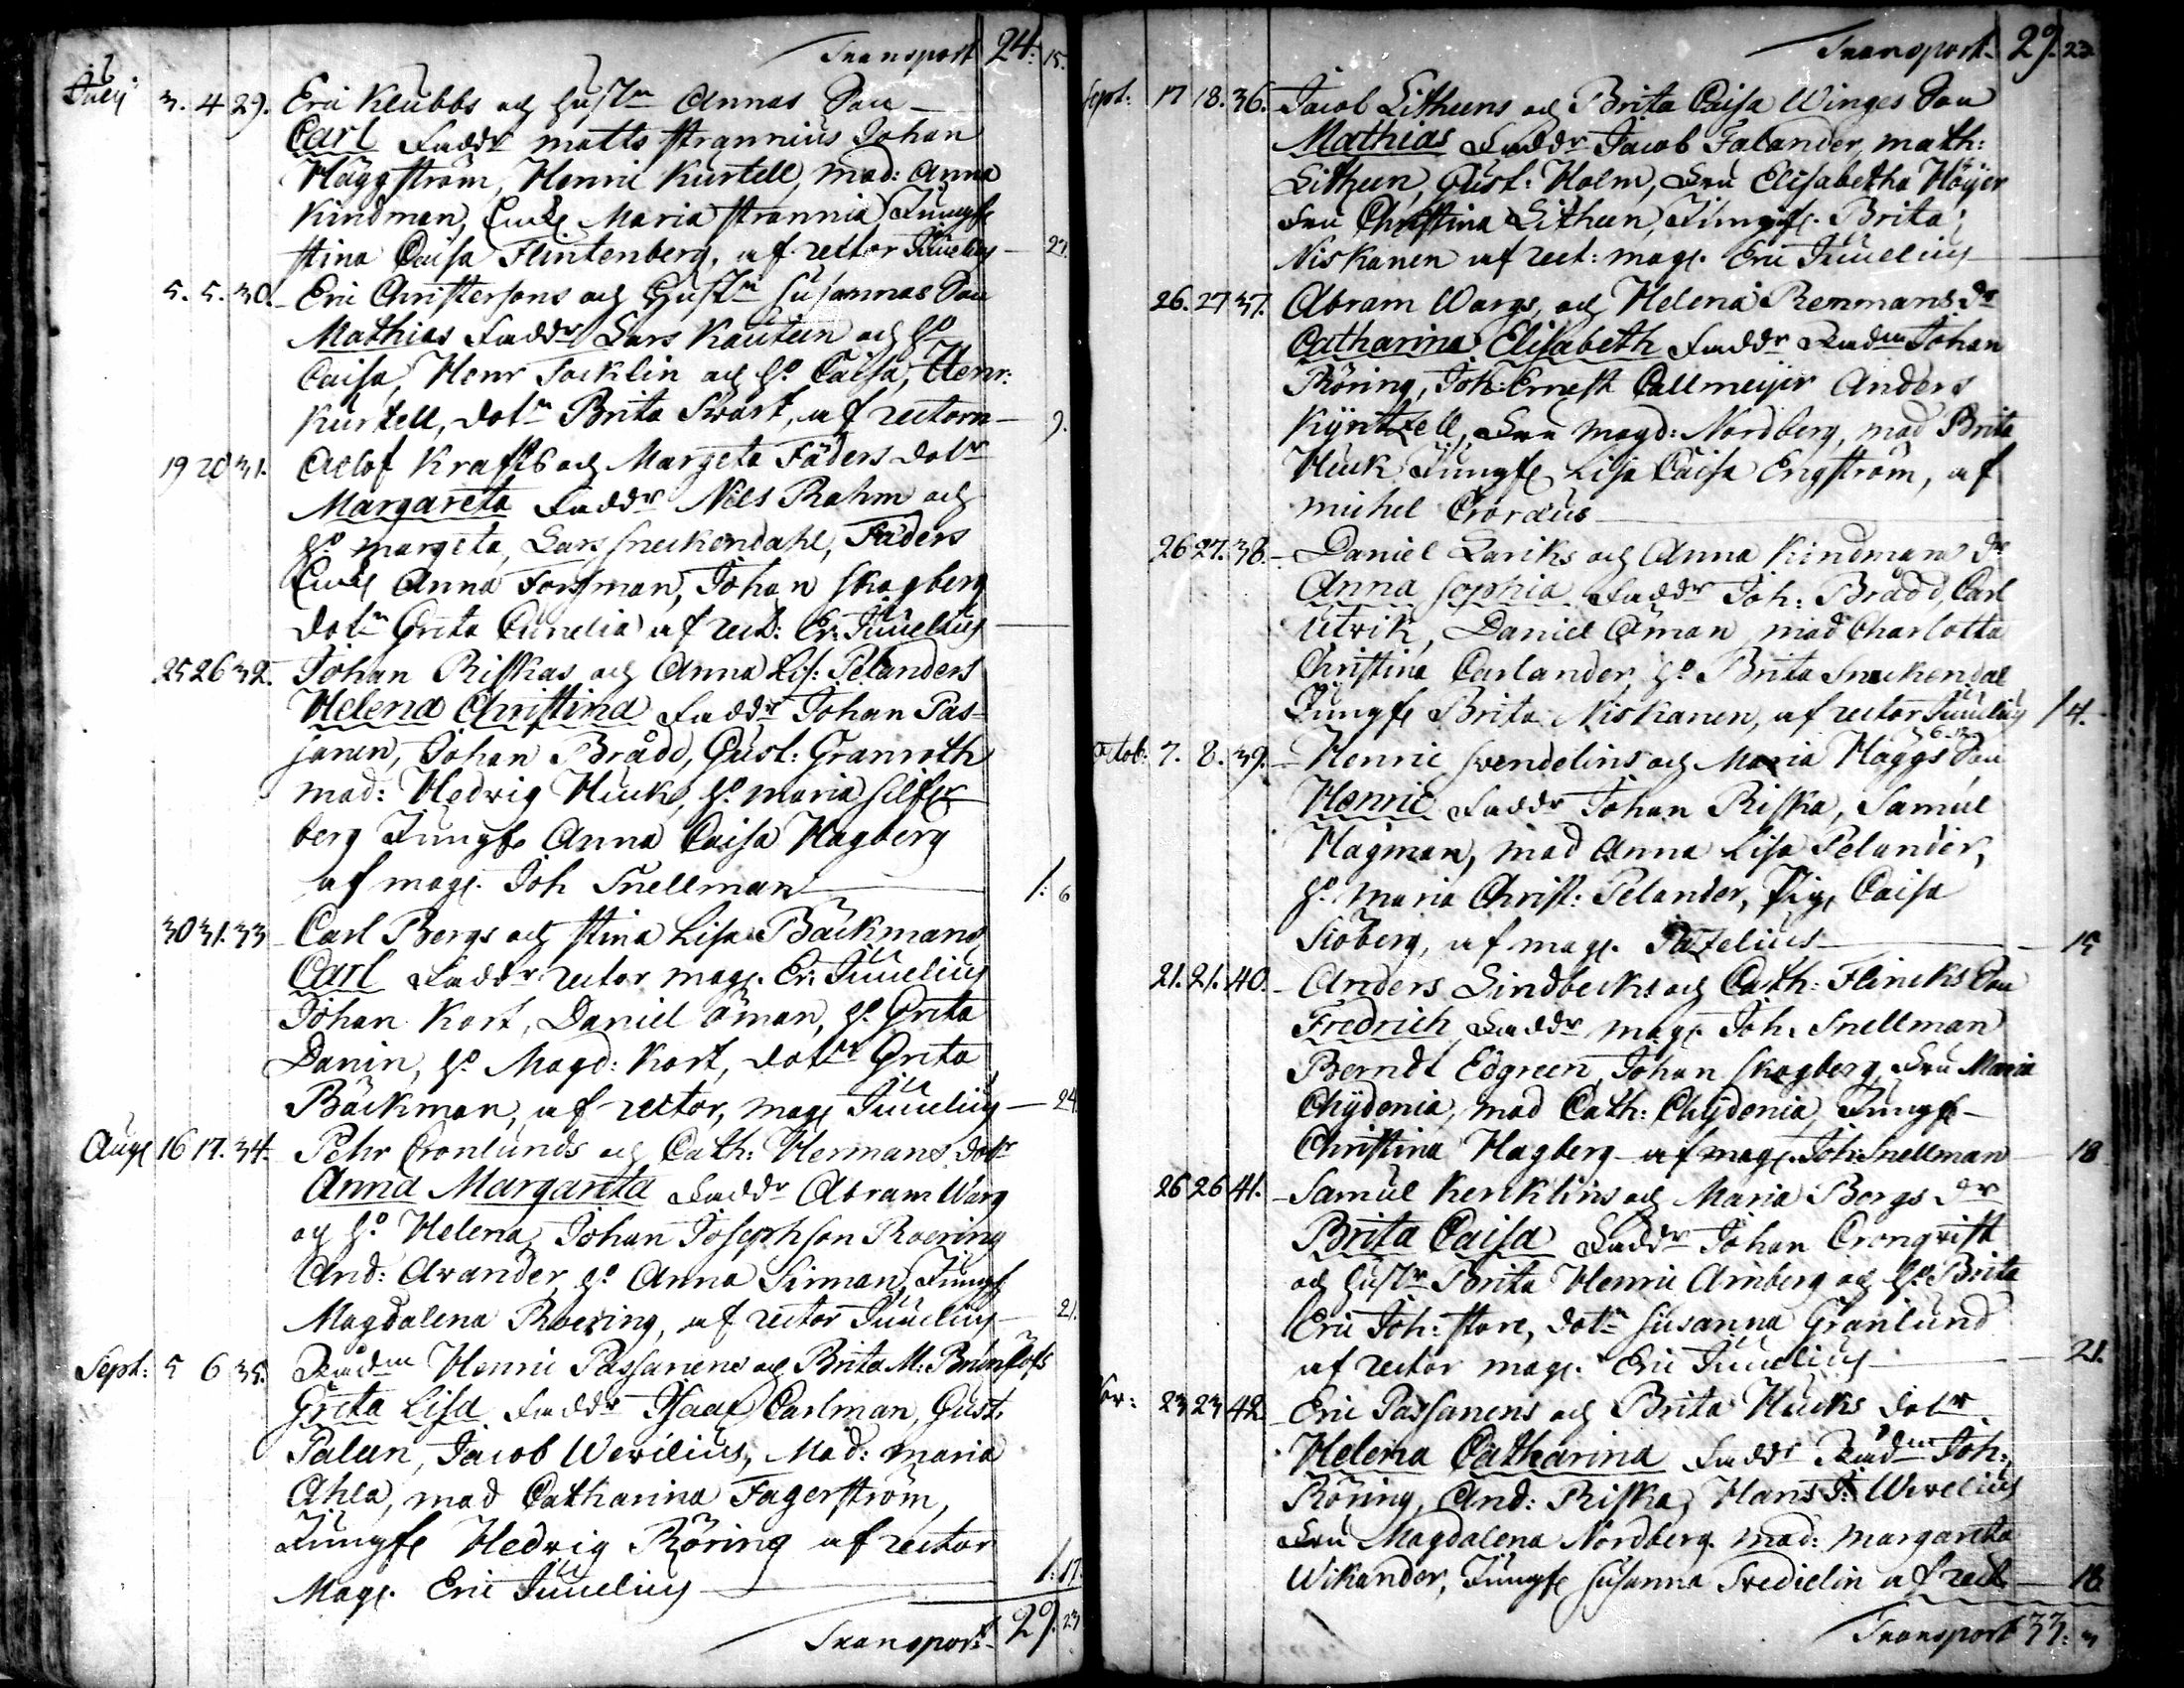 Transport 24: 15.
July 3. 4 29. Eric Klubbs och hustn Annas Son
Carl Faddr Matts Strannius Johan
Häggström, Henric Kurtell, mad: Anna
Kindman, Enke Maria Strannia Jungf
Stina Caisa Flintenberg, af rector Juuelius 27.
5. 5. 30. Eric Christersons och Hustn Susannas Son
Mathias Faddr Lars Kauteen och ho
Caisa, Henr Focklin och ho Caisa, Henr:
Kurtell, dotn Brita Svart, af rectorn 9.
19 20 31. Oelof Krafts och Margeta Fäders dotr
Margareta Faddr Nils Rahm och
ho margeta, Lars Sneckendahl, Fäders
Enke Anna Forssman, Johan Skogberg
dotn Greta Cunelia af rect: Er: Juuelius
25 26 32. Johan Riskas och Anna Lis: Pelanders
Helena Christina Faddr Johan Pas-
sanen, Johan Brådd, Gust: Granroth
mad: Hedvig Huuk, ho maria Silfver
berg Jungf Anna Caisa Hagberg
af mag. Joh Snellman 1: 6
30 31. 33 Carl Bergs och Stina Lisa Bäckmans
Carl Faddr rector mag. Er: Juuelius
Johan Kort, Daniel Öman, ho Greta
Danin, ho Magd: Kort, dotn Greta
Bäckman, af rector, mag Juuelius 24.
Aug 16 17. 34. Pehr Cronlunds och Cath: Hermans dotr
Anna Margareta Faddr Abram Warg
och ho Helena, Johan Josephson Roering
And: Arander, ho Anna Sirman, Jungf
Magdalena Roering, af rector Juuelius 21.
Sept: 5 6 35. Rådm Henric Passanens och Brita M: Brunlöfs
Greta Lisa Faddr Isaac Carlman, Gust.
Paleen, Jacob Wevilius, Mad: maria
Ahla, mad Catharina Fagerström,
Jungf Hedvig Röring af rector
Mag. Eric Juuelius 1: 17.
Transport 29. 23
Transport 29. 23.
Sept: 17 18. 36. Jacob Litheens och Brita Caisa Winges Son
Mathias Faddr Jacob Falander, math:
Litheen, Gust: Holm, Fru Elisabetha Höijer
Fru Christina Litheen, Jungf. Brita
Niskanen af rect: mag. Eric Juuelius
26. 27 37. Abram Wargs, och Helena Remmans dr
Catharina Elisabeth Faddr Rådm Johan
Röring, Joh: Ernest Callmeijer Anders
Kyntzell, Fru Magd: Nordberg, mad Brita
Huuk Jungf Lisa Caisa Engström, af
michel Croræus
26 27. 38. Daniel Lariks och Anna Kindmans dr
Anna Sophia Faddr Joh: Brådd, Carl
Utrik, Daniel Öman, mad Charlotta
Christina Carlander, ho Brita Sneckendal
Jungf Brita Niskanen, af rector Juuelius 1 4.
Octob: 7. 8. 39. Henric Svendelins och Maria Häggs Son
Henric Faddr Johan Riska, Samuel
Hagman, mad Anna Lisa Pelander,
ho Maria Christ: Pelander, Pig Caisa
Siöberg, af mag. Pazelius 15
21. 21. 40. Anders Lindbecks och Cath: Flincks Son
Fredrich Faddr mag. Joh: Snellman
Berndt Edgreen, Johan Skogberg, Fru Maria
Chydenia, mad Cath: Chydenia, Jungf
Christina Hagberg af mag. Joh: Snellman 18
26 26 41. Samuel Kenklins och Maria Bergs dr
Brita Caisa Faddr Johan Cronqvist
och hustn Brita Henric Arnberg och ho Brita
Eric Joh: Store, dotn Susanna Granlund
af rector mag. Eric Juuelius 21.
Nov: 23 23 42. Eric Passanens och Brita Huuks dotr
Helena Catharina Faddr Rådm Joh:
Röring, And: Riska, Hans J: Wevelius
Fru Magdalena Nordberg. mad: margareta
Wikander, Jungf Susanna Svedielin af rect 18.
Transport 33: 3